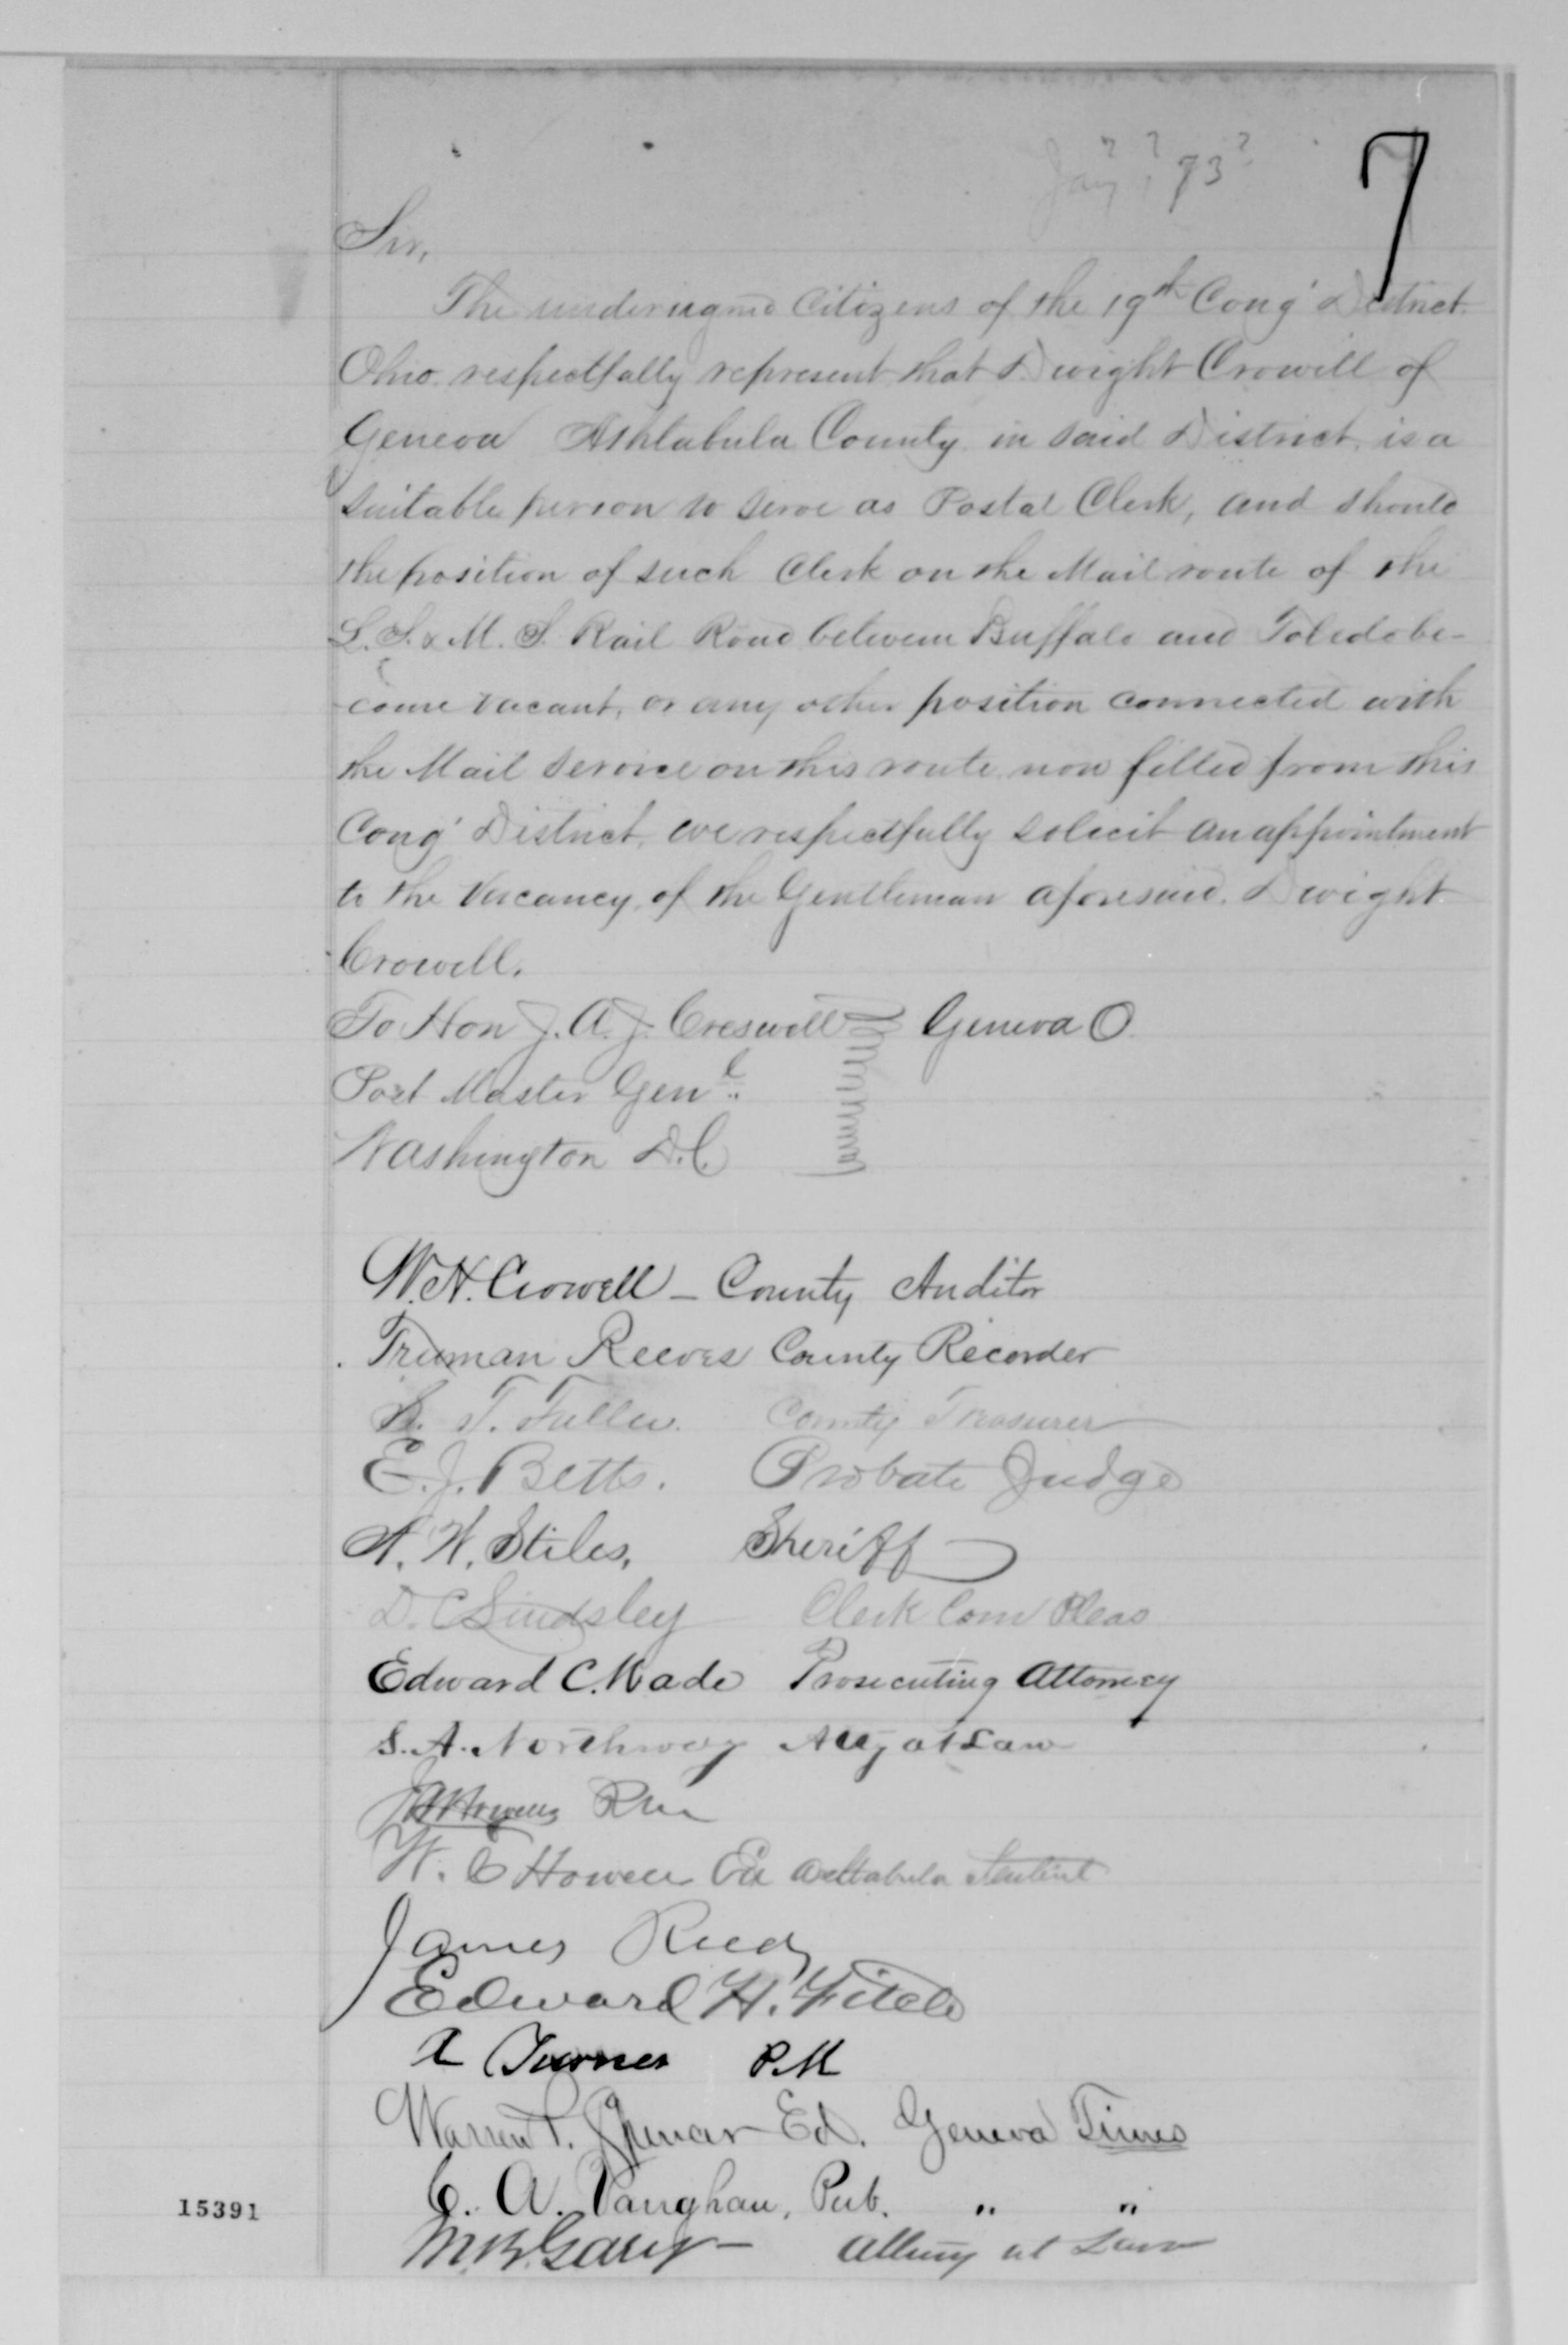 7
Sir,
The undersigned Citizens of the 19th Cong' District
Ohio respectfully represent that Dwight Crowell of
Geneva Ashtabula County in said District, is a
suitable person to serve as Postal Clerk, and should
the position of such Clerk on the Mail route of the
L. S. & M. S. Rail Road between Buffalo and Toledo be-
-come vacant, or any other position connected with
the Mail service on this route now filled from this
Cong' District, we respectfully solicit an appointment
to the Vacancy, of the Gentleman aforesaid, Dwight
Crowell.
To Hon J. A. J. Creswell Geneva O.
Post Master Genl.
Washington D.C.
W. H. Crowell - County Auditor
Truman Reeves County Recorder
S. T. Fuller. County Treasurer
E. J. Betts. Probate Judge
A. W. Stiles, Sheriff
D. C. Lindsley Clerk Com Pleas
Edward C. Wade Prosecuting Attorney
S. A. Northway Atty at Law
J. A. Howells PM
W. C Howells Ed Ashtabula Sentinel
James Reed
Edward H. Fitch
Turner P.M
Warren P. Spencer Ed. Geneva Times
C. A. Vaughan, Pub. " "
M. B. Gary Attorney at Law
15391